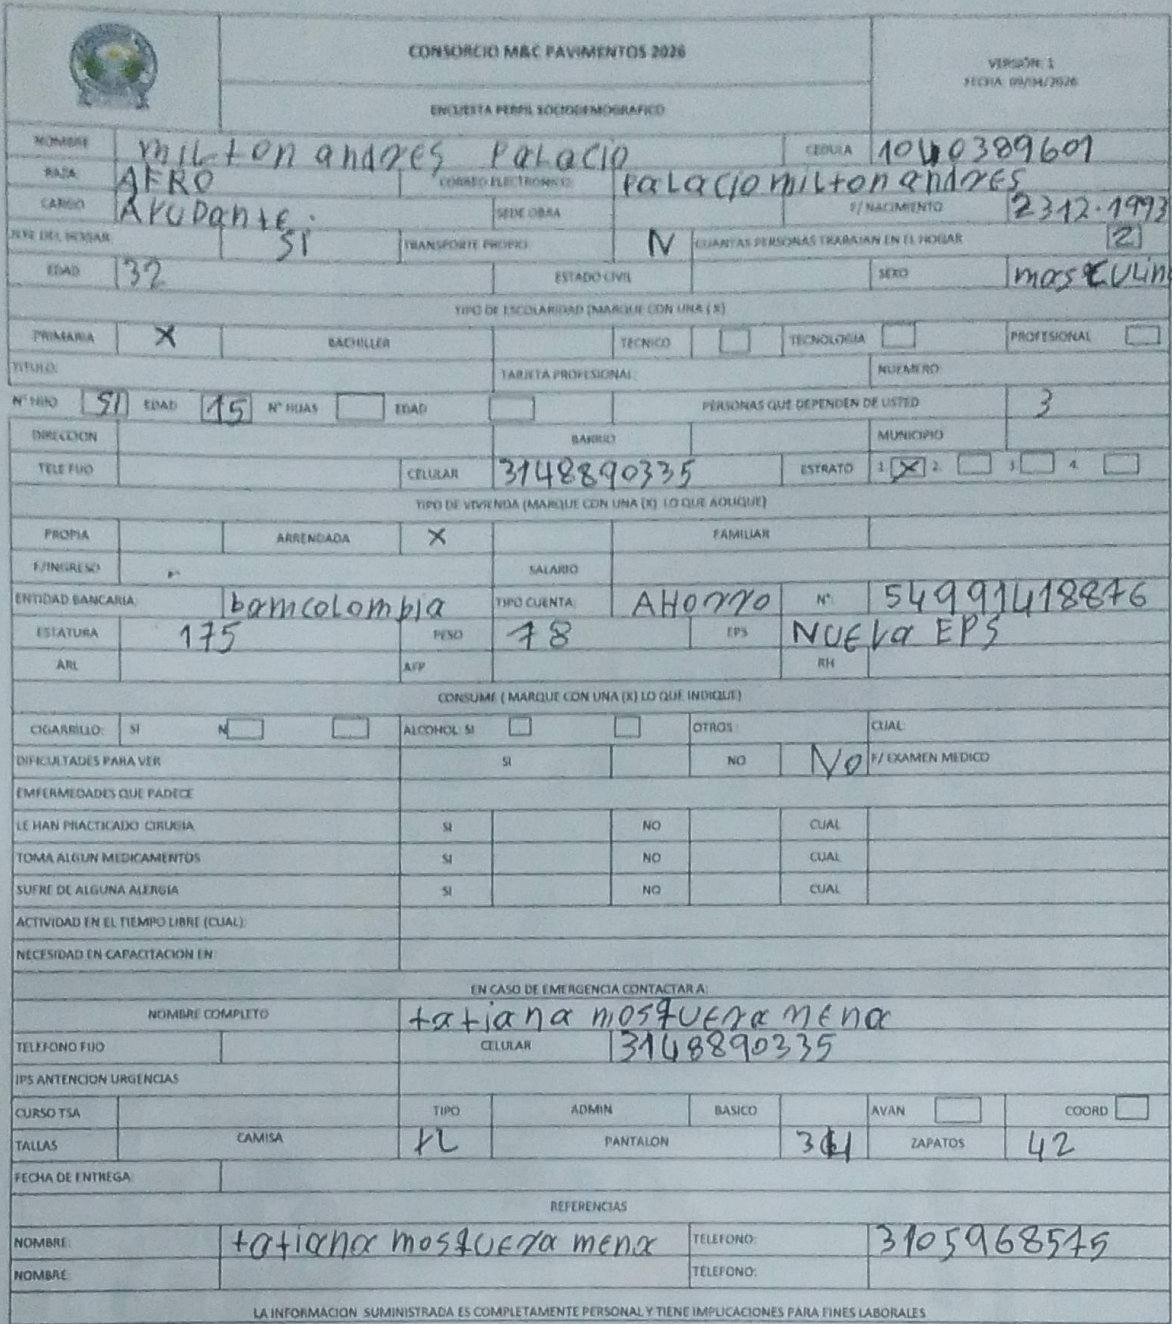 CONSORCIO M&C PAVIMENTOS 2026
VERSIÓN: 1
FECHA: 09/04/2026
ENCUESTA PERFIL SOCIODEMOGRAFICO
NOMBRE milton andres Palacio CEDULA 1040389601
RAZA AFRO CORREO ELECTRONICO palaciomiltonandres
CARGO Ayudante. SEDE OBRA F/ NACIMIENTO 2312.1993
JEFE DEL HOGAR: SI TRANSPORTE PROPIO N CUANTAS PERSONAS TRABAJAN EN EL HOGAR 2
EDAD 32 ESTADO CIVIL SEXO masculin
TIPO DE ESCOLARIDAD (MARQUE CON UNA (X)
PRIMARIA X BACHILLER TECNICO TECNOLOGIA PROFESIONAL
TITULO: TARJETA PROFESIONAL: NUEMERO:
N° HIJO SI EDAD 15 N° HIJAS EDAD PERSONAS QUE DEPENDEN DE USTED 3
DIRECCION BARRIO MUNICIPIO
TELE FIJO CELULAR 3148890335 ESTRATO 1 X 2. 3. 4.
TIPO DE VIVIENDA (MARQUE CON UNA (X) LO QUE AOLIQUE)
PROPIA ARRENDADA X FAMILIAR
F/INGRESO SALARIO
ENTIDAD BANCARIA: bamcolombia TIPO CUENTA: AHorro N°: 54991418876
ESTATURA 175 PESO 78 EPS NUEva EPS
ARL AFP RH
CONSUME ( MARQUE CON UNA (X) LO QUE INDIQUE)
CIGARRILLO: SI N ALCOHOL: SI OTROS : CUAL:
DIFICULTADES PARA VER SI NO No F/ EXAMEN MEDICO
EMFERMEDADES QUE PADECE
LE HAN PRACTICADO CIRUGIA SI NO CUAL
TOMA ALGUN MEDICAMENTOS SI NO CUAL
SUFRE DE ALGUNA ALERGIA SI NO CUAL
ACTIVIDAD EN EL TIEMPO LIBRE (CUAL):
NECESIDAD EN CAPACITACION EN:
EN CASO DE EMERGENCIA CONTACTAR A:
NOMBRE COMPLETO tatiana mosquera mena
TELEFONO FIJO CELULAR 3148890335
IPS ANTENCION URGENCIAS
CURSO TSA TIPO ADMIN BASICO AVAN COORD
TALLAS CAMISA PANTALON ZAPATOS 42
FECHA DE ENTREGA:
REFERENCIAS
NOMBRE: tatiana mosquera mena TELEFONO: 3105968575
NOMBRE: TELEFONO:
LA INFORMACION SUMINISTRADA ES COMPLETAMENTE PERSONAL Y TIENE IMPLICACIONES PARA FINES LABORALES